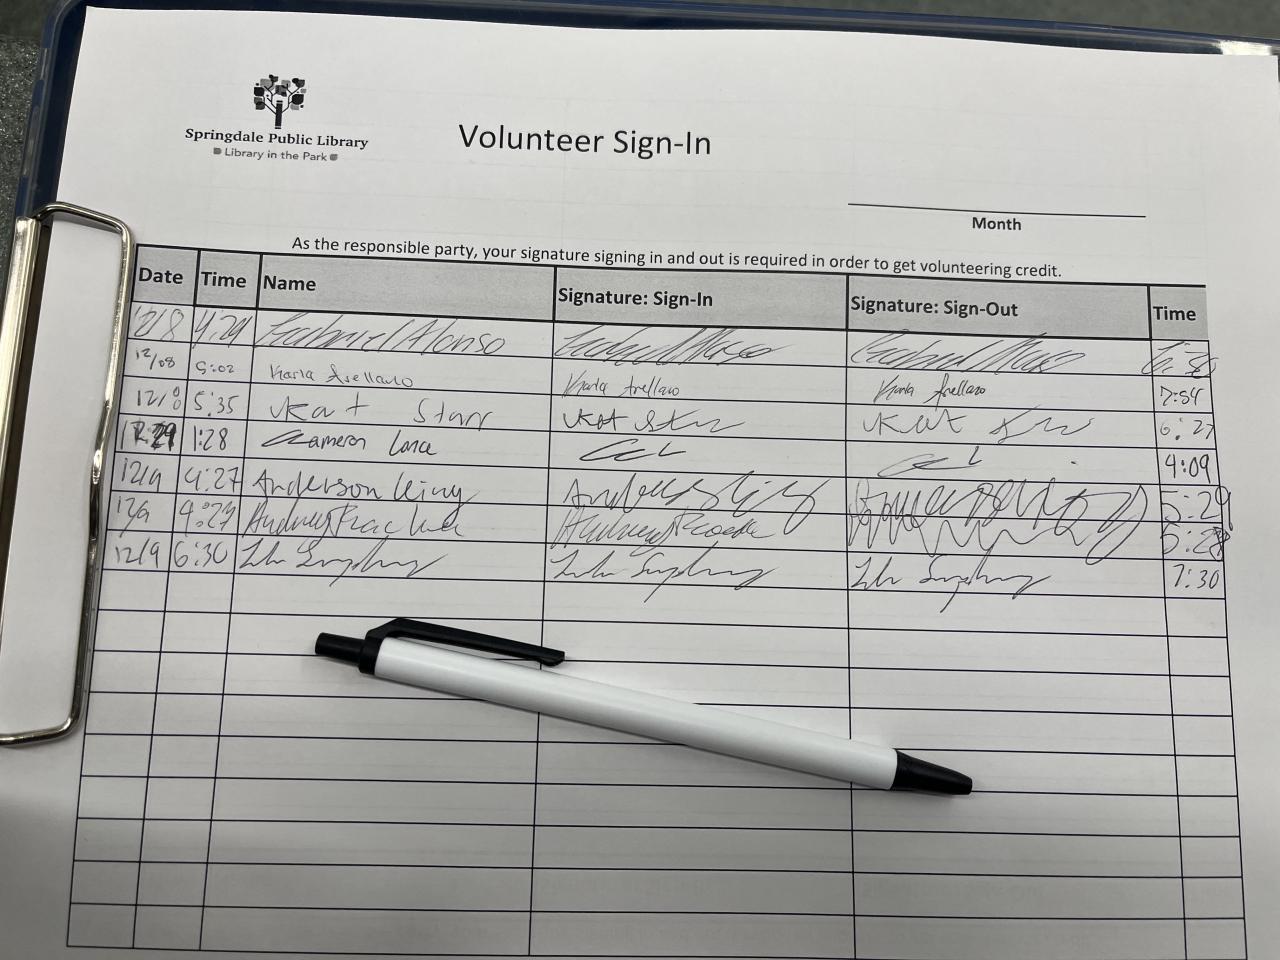 Springdale Public Library
Library in the Park
Volunteer Sign-In
Month
As the responsible party, your signature signing in and out is required in order to get volunteering credit.
Date Time Name Signature: Sign-In Signature: Sign-Out Time
12/8 4:24 Gabriel Alonso
12/08 5:02 Karla Arellano Karla Arellano Karla Arellano 7:54
12/8 5:35 Kat Starr Kat Kat 6:27
1:28 Cameron Lance 4:09
12/9 4:27 Anderson King 5:29
12/9 4:27 Audrey 5:28
12/9 6:30 7:30